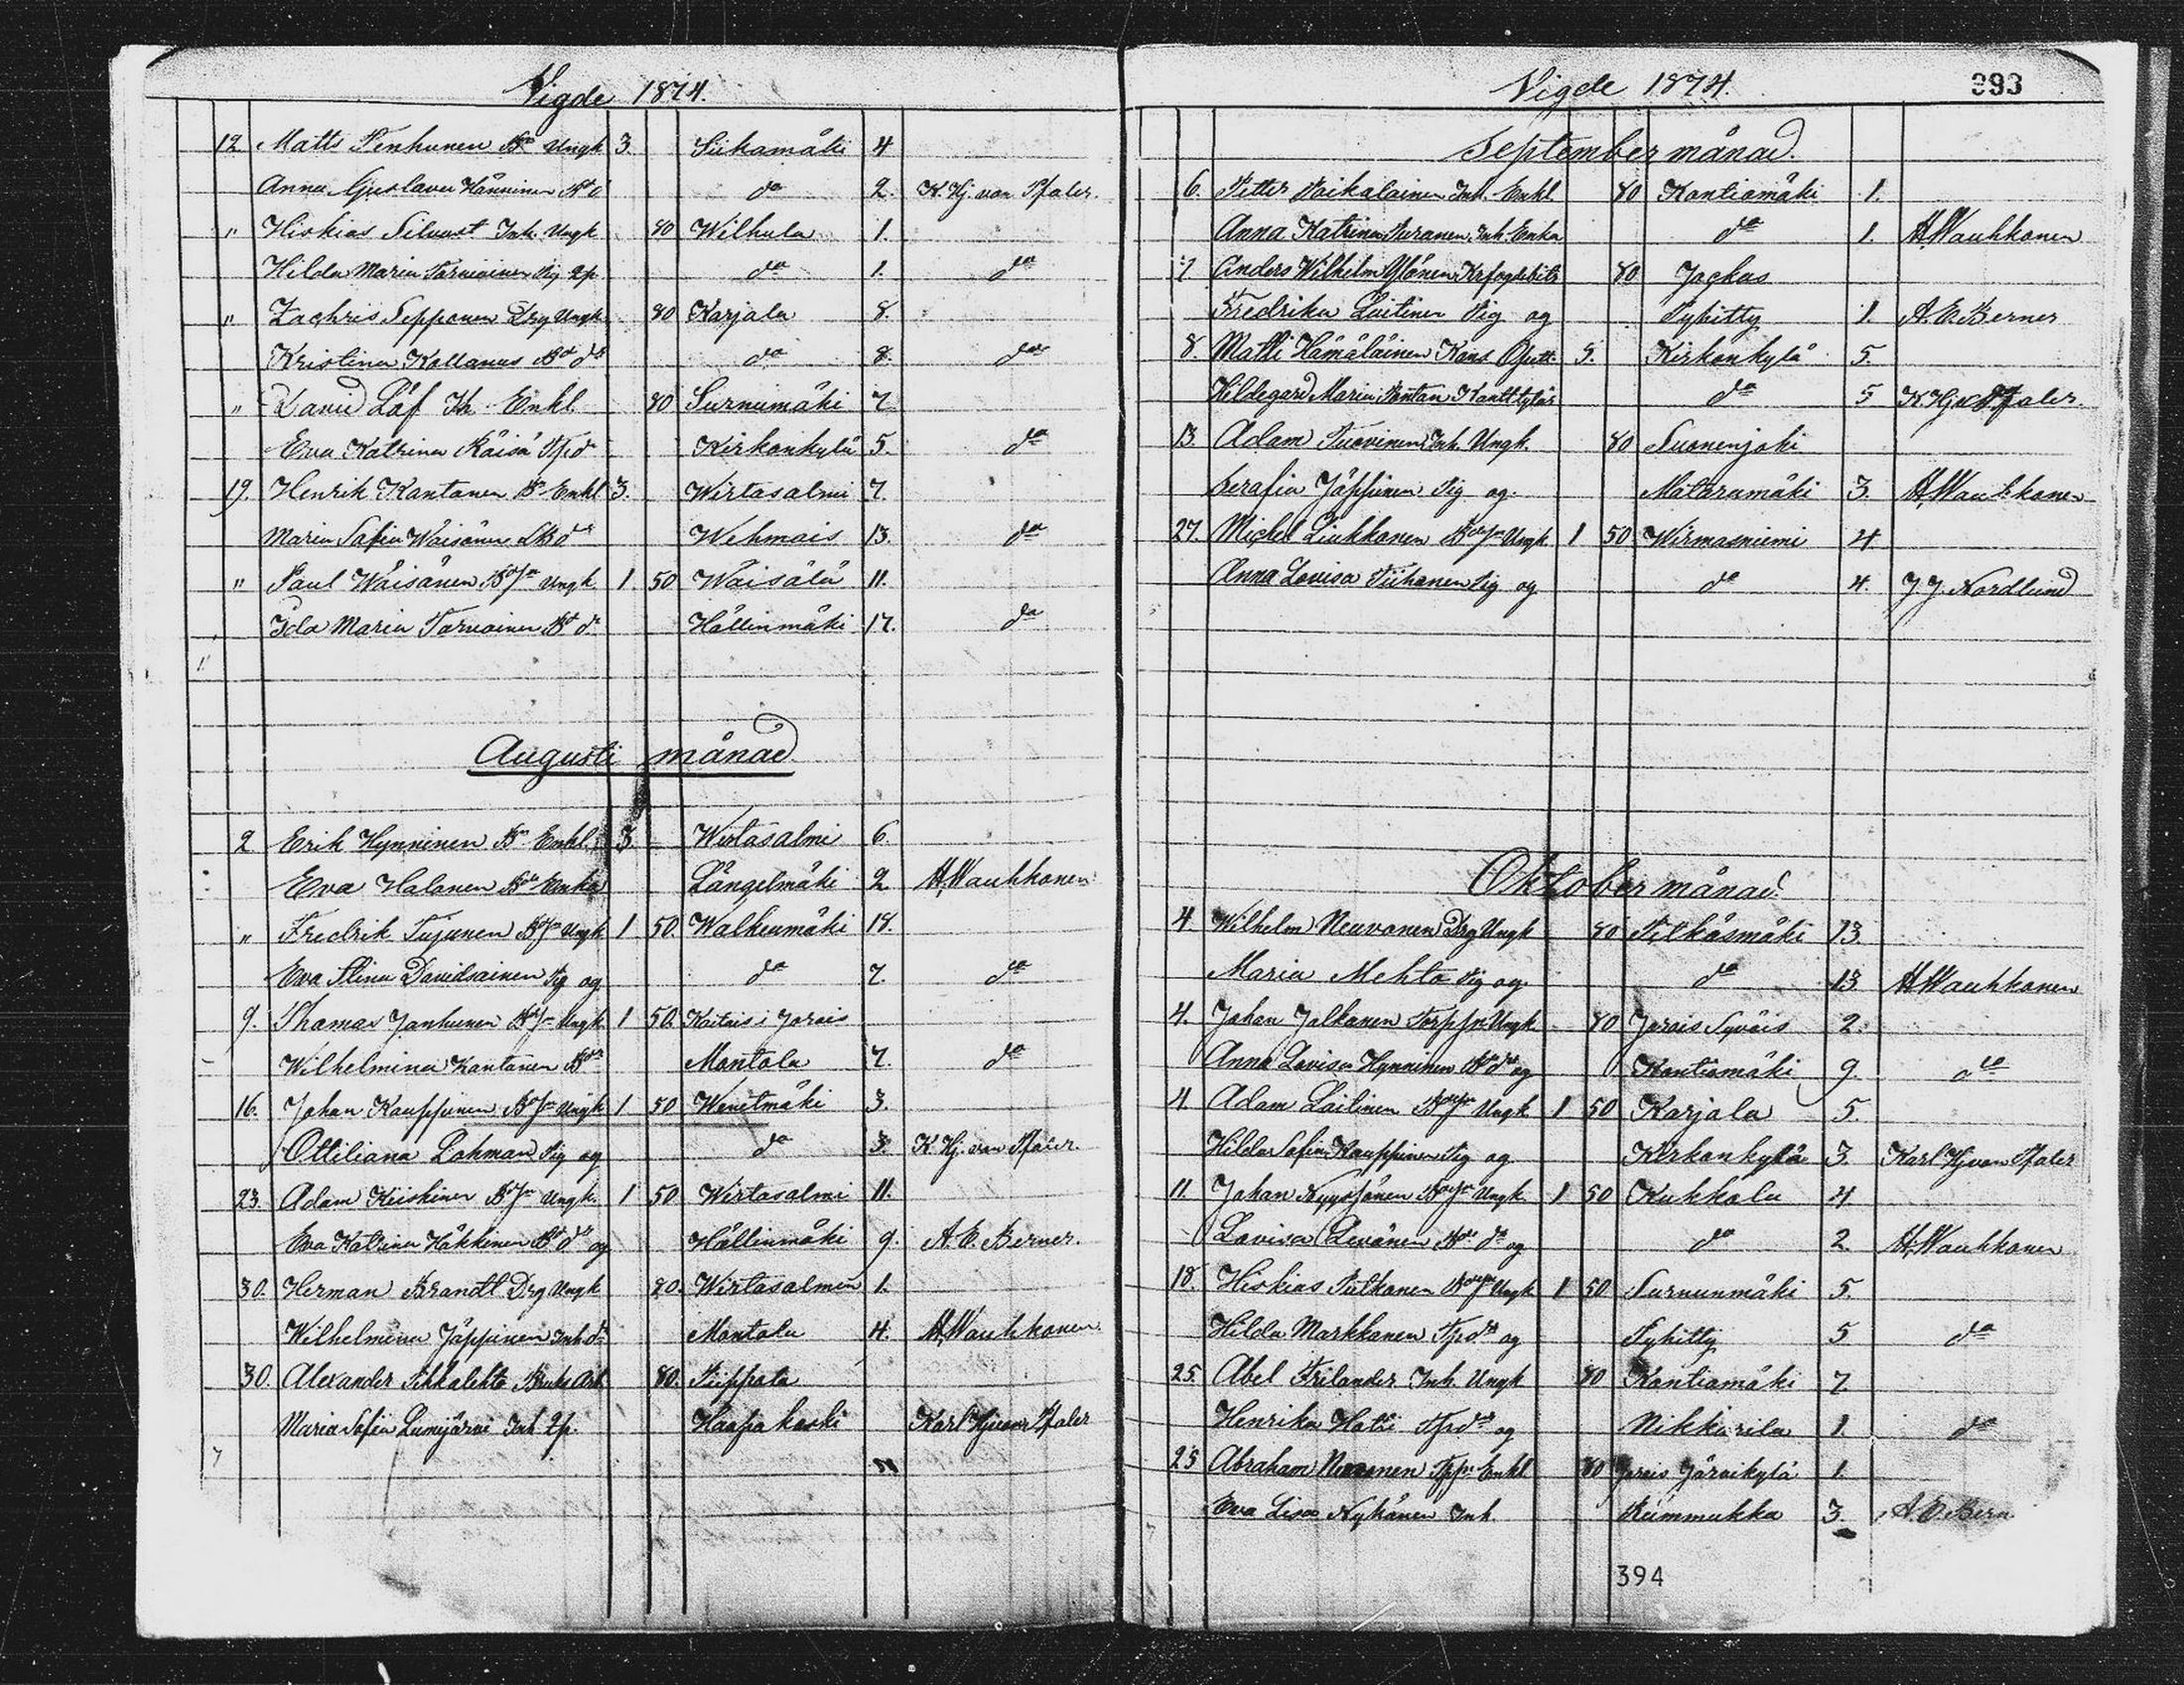 Vigde 1874.
12 Matts Tenhunen Bn Ungk 3. Siikamäki 4
Anna Gustava Hänninen Bd d do 2. K. Hj. von Pfaler.
" Hiskias Silvast Inh. Ungk 80 Wilhula 1.
Hilda Maria Tarvainen Pig qp do 1. do
" Zachris Sepponen Drg Ungk 80 Karjala 8.
Kristina Kollanus Bd dr do 8. do
" David Läf Enkl. 80 Surnumäki 7.
Eva Katrina Räisä Tp d Kirkonkylä 5. do
19. Henrik Kantanen Bn Enkl 3. Wirtasalmi 7.
Maria Sofia Waisänen dr Wehmais 13. do
" Paul Wäisänen Ungk 1. 50 Wäisälä 11.
Ida Maria Tarvainen Bd d. Hällinmäki 17. do
Augusti månad.
2 Erik Hynninen Bn Enkl. 3. Wirtasalmi 6.
Eva Halonen Enka Längelmäki 2 H. Wauhkonen
" Fredrik Ungk 1 50. Walkeamäki 18.
Eva Stina Davidsainen Pig og do 7. do
9. Thomas Janhunen Ungk 1 50. Kaitais i Jorois
Wilhelmina Kantanen Montola 7. do
16. Johan Kauppinen Ungk 1 50 Wenetmäki 3.
Ottiliana Lohman Pig og do 3. K. Hj. von Pfaler.
23. Adam Keiskinen Ungk. 1 50 Wirtasalmi 11.
Eva Katrina Häkkinen Bd dr og Hällinmäki 9. A. E. Berner.
30. Herman Brandt Drg Ungk 80. Wirtasalmen 1.
Wilhelmina Jäppinen Inh dr Montola 4. H. Wauhkonen
30. Alexander Pihkalehto Bruks Arb 80. Piippola
Maria Sofia Lumijärvi Inh qp. Haapakoski Karl Hj von Pfaler
Vigde 1874. 393
September månad.
6. Petter Poikalainen Inh. Enkl 80 Kontiomäki 1.
Anna Katrina Puranen Inh. Enka do 1. H. Wauhkonen
7 Anders Wilhelm Ylönen 80 Jackas
Fredrika Laitinen Pig og Pyhitty 1. A. E. Berner
8. Matti Hämäläinen 3. Kirkonkylä 5.
Hildegard Maria do 5 K. Hj. v. Pfaler.
13. Adam Tuovinen Inh. Ungk. 80 Suonenjoki
Serafia Jäppinen Pig og. Mataramäki 3. H. Wauhkonen
27. Michel Liukkonen Ungk 1 50 Wirmasniemi 4
Anna Lovisa Tiihonen Pig og do 4. J. J. Nordlund
Oktober månad.
4. Wilhelm Neuvonen Drg Ungk 80 Pitkäsmäki 13.
Maria Mehto Pig og do 13 H. Wauhkonen
4. Johan Jalkanen Torp sn Ungk 80 Jorois Syväis 2.
Anna Lovisa Hynninen Bd dr og Kontiomäki 9. do
4. Adam Laitinen Ungk 1 50 Karjala 5.
Hilda Sofia Kauppinen Pig og Kirkonkylä 3. Karl Hj von Pfaler
11. Johan Nyyssönen Ungk. 1 50 Kukkola 4
Lovisa Levänen Bd dr og do 2. H. Wauhkonen
18. Hiskias Pulkanen Ungk 1 50 Surnunmäki 5.
Hilda Markkanen Tp dr og Pyhitty 5 do
25. Abel Frilander Inh. Ungk 80 Kontiomäki 7.
Henrika Tp dr og Nikkarila 1. do
25 Abraham Enkl 80 Jorois Järvikylä 1.
Eva Lisa Nykänen Inh. Rummukka 3. A. E. Bern
394